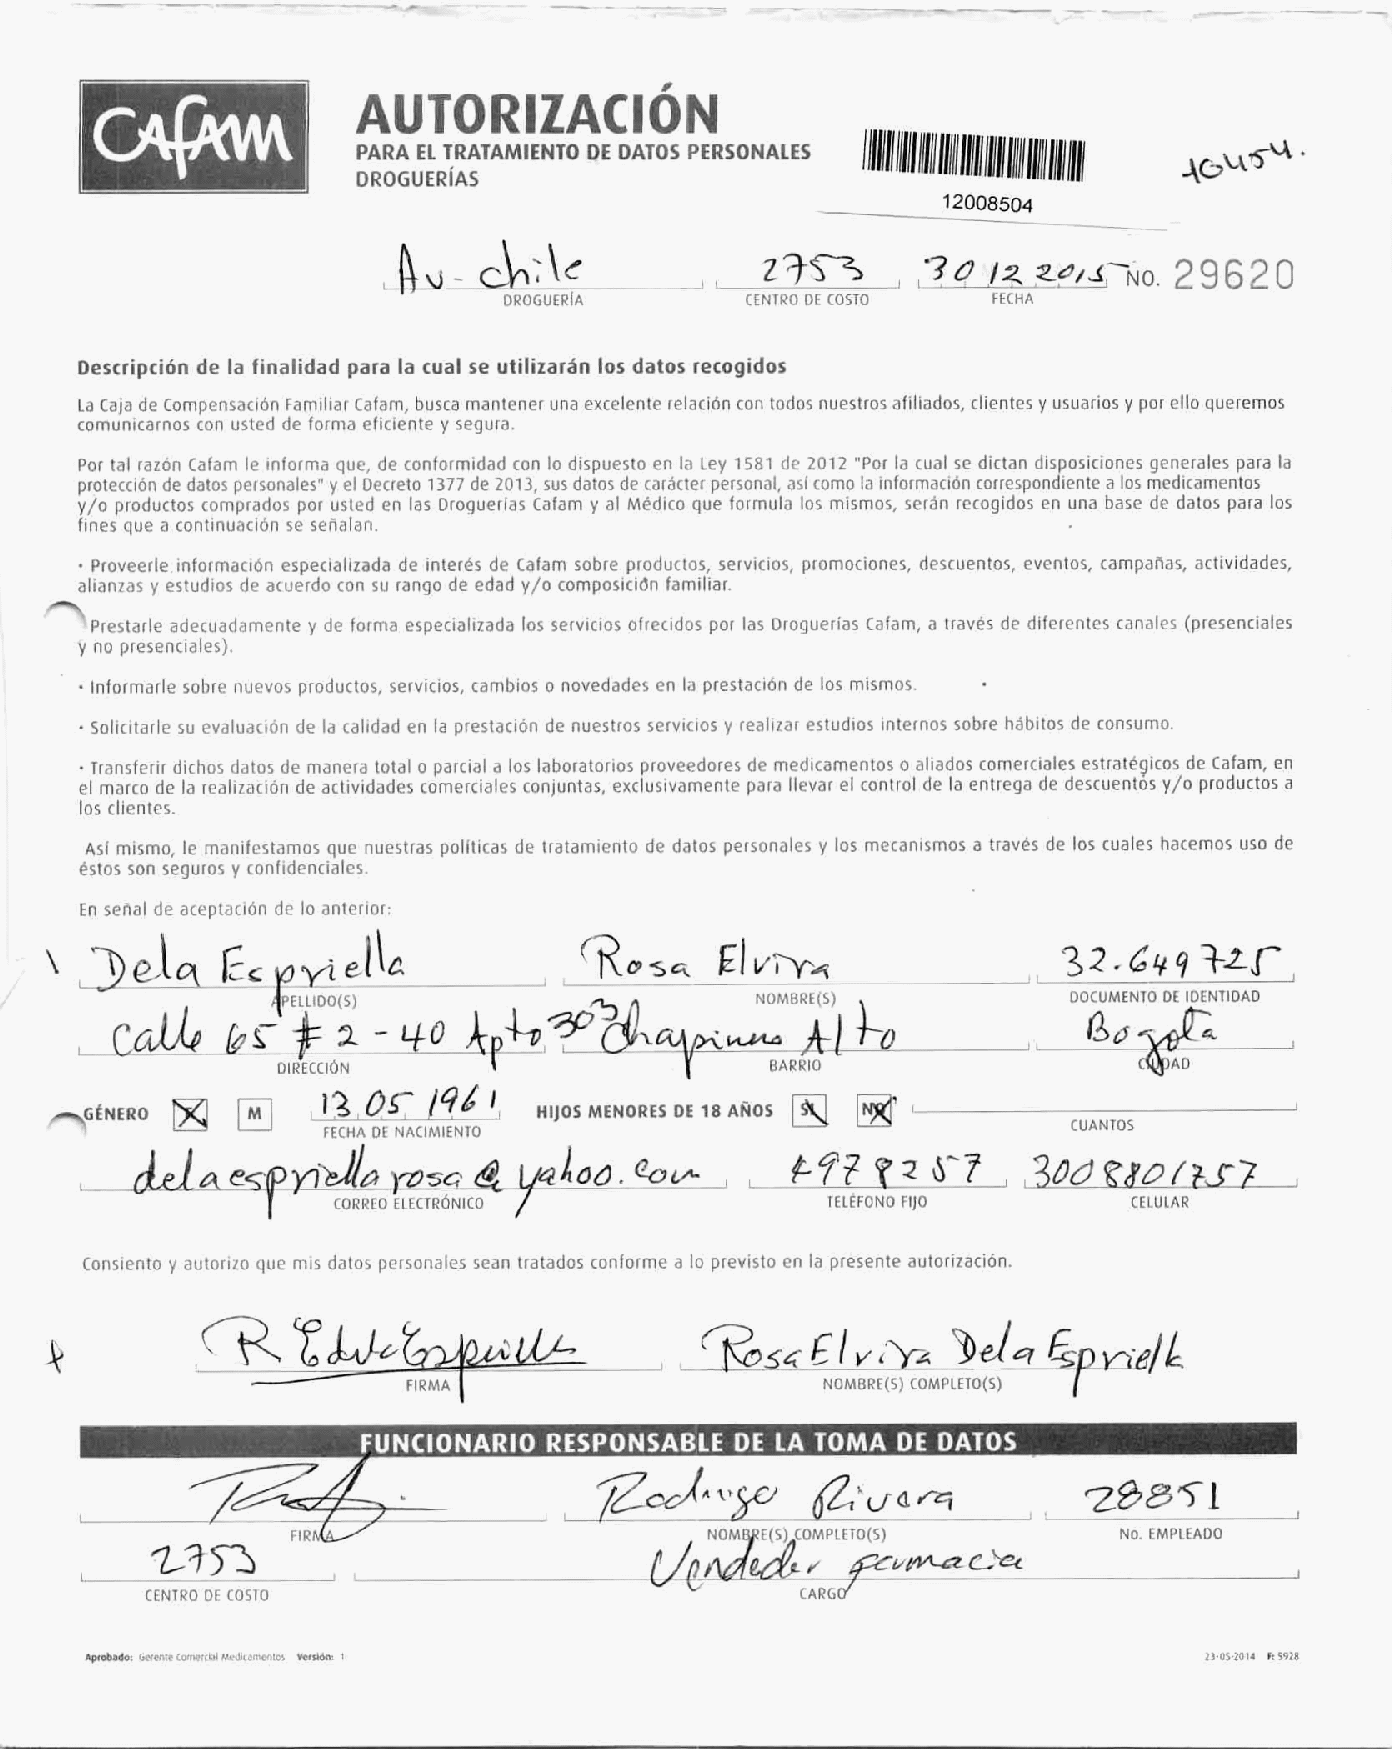 CAFAM
AUTORIZACIÓN
PARA EL TRATAMIENTO DE DATOS PERSONALES
DROGUERÍAS
12008504
16454.
Av- chile 2753 30 12 2015 No. 29620
DROGUERÍA CENTRO DE COSTO FECHA
Descripción de la finalidad para la cual se utilizarán los datos recogidos
La Caja de Compensación Familiar Cafam, busca mantener una excelente relación con todos nuestros afiliados, clientes y usuarios y por ello queremos
comunicarnos con usted de forma eficiente y segura.
Por tal razón Cafam le informa que, de conformidad con lo dispuesto en la Ley 1581 de 2012 "Por la cual se dictan disposiciones generales para la
protección de datos personales" y el Decreto 1377 de 2013, sus datos de carácter personal, así como la información correspondiente a los medicamentos
y/o productos comprados por usted en las Droguerías Cafam y al Médico que formula los mismos, serán recogidos en una base de datos para los
fines que a continuación se señalan.
· Proveerle información especializada de interés de Cafam sobre productos, servicios, promociones, descuentos, eventos, campañas, actividades,
alianzas y estudios de acuerdo con su rango de edad y/o composición familiar.
Prestarle adecuadamente y de forma especializada los servicios ofrecidos por las Droguerías Cafam, a través de diferentes canales (presenciales
y no presenciales).
· Informarle sobre nuevos productos, servicios, cambios o novedades en la prestación de los mismos.
· Solicitarle su evaluación de la calidad en la prestación de nuestros servicios y realizar estudios internos sobre hábitos de consumo.
· Transferir dichos datos de manera total o parcial a los laboratorios proveedores de medicamentos o aliados comerciales estratégicos de Cafam, en
el marco de la realización de actividades comerciales conjuntas, exclusivamente para llevar el control de la entrega de descuentos y/o productos a
los clientes.
Así mismo, le manifestamos que nuestras políticas de tratamiento de datos personales y los mecanismos a través de los cuales hacemos uso de
éstos son seguros y confidenciales.
En señal de aceptación de lo anterior:
Dela Espriella Rosa Elvira 32.649725
APELLIDO(S) NOMBRE(S) DOCUMENTO DE IDENTIDAD
Calle 65 # 2 - 40 Apto 303 Chapinero Alto Bogota
DIRECCIÓN BARRIO CIUDAD
GÉNERO M 13 05 1961 HIJOS MENORES DE 18 AÑOS SI NO
FECHA DE NACIMIENTO CUANTOS
delaespriellarosa@yahoo.com 4978257 3008801757
CORREO ELECTRÓNICO TELÉFONO FIJO CELULAR
Consiento y autorizo que mis datos personales sean tratados conforme a lo previsto en la presente autorización.
Rosa Elvira Dela Espriella
FIRMA NOMBRE(S) COMPLETO(S)
FUNCIONARIO RESPONSABLE DE LA TOMA DE DATOS
Rodrigo Rivera 28851
FIRMA NOMBRE(S) COMPLETO(S) No. EMPLEADO
2753 Vendedor farmacia
CENTRO DE COSTO CARGO
Aprobado: Gerente Comercial Medicamentos Versión: 1 23-05-2014 F: 5928